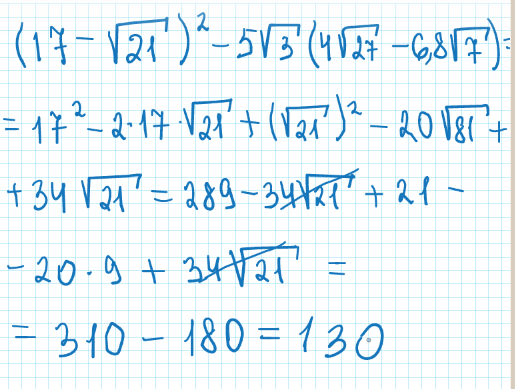 (17 - √21)² - 5√3 (4√27 - 6,8√7) =
= 17² - 2·17·√21 + (√21)² - 20√81 +
+ 34√21 = 289 - 34√21 + 21 -
- 20·9 + 34√21 =
= 310 - 180 = 130